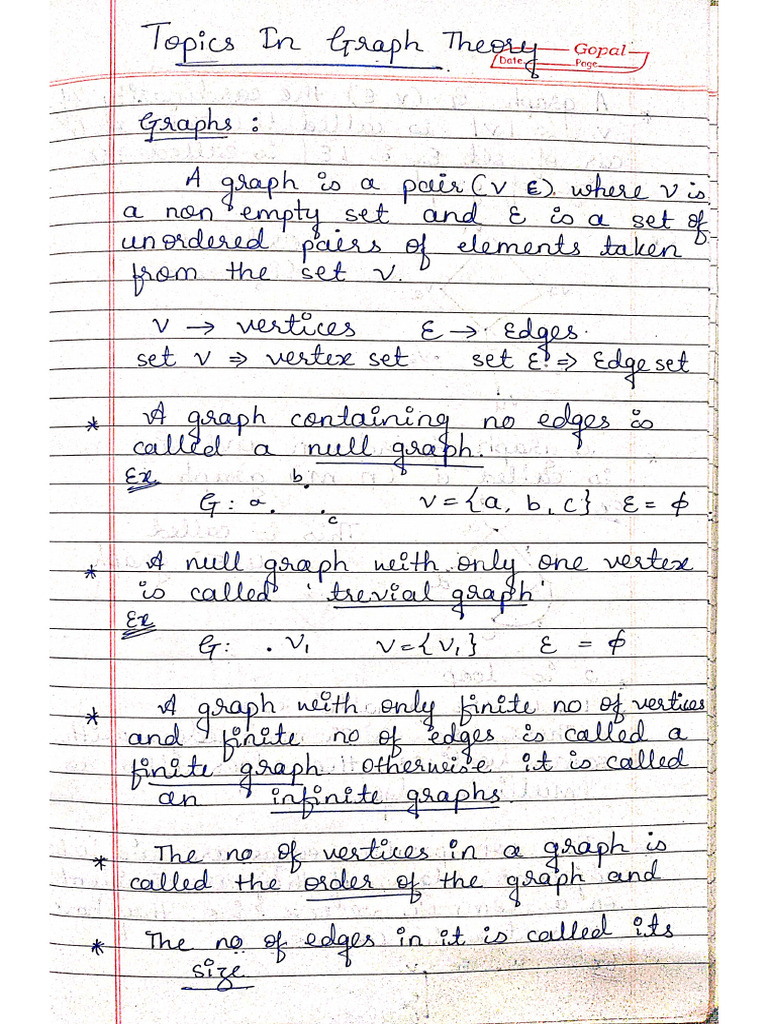 Topics In Graph Theory
Gopal
Date Page
Graphs :
A graph is a pair (V E) where V is
a non empty set and E is a set of
unordered pairs of elements taken
from the set V.
V → vertices E → Edges.
set V ⇒ vertex set set E ⇒ Edge set
* A graph containing no edges is
called a null graph.
Ex
b.
G: a. . V = {a, b, c} E = ϕ
c
* A null graph with only one vertex
is called 'trevial graph'
Ex
G: . V₁ V = {V₁} E = ϕ
* A graph with only finite no of vertices
and finite no of edges is called a
finite graph otherwise it is called
an infinite graphs.
* The no of vertices in a graph is
called the order of the graph and
* The no of edges in it is called its
size